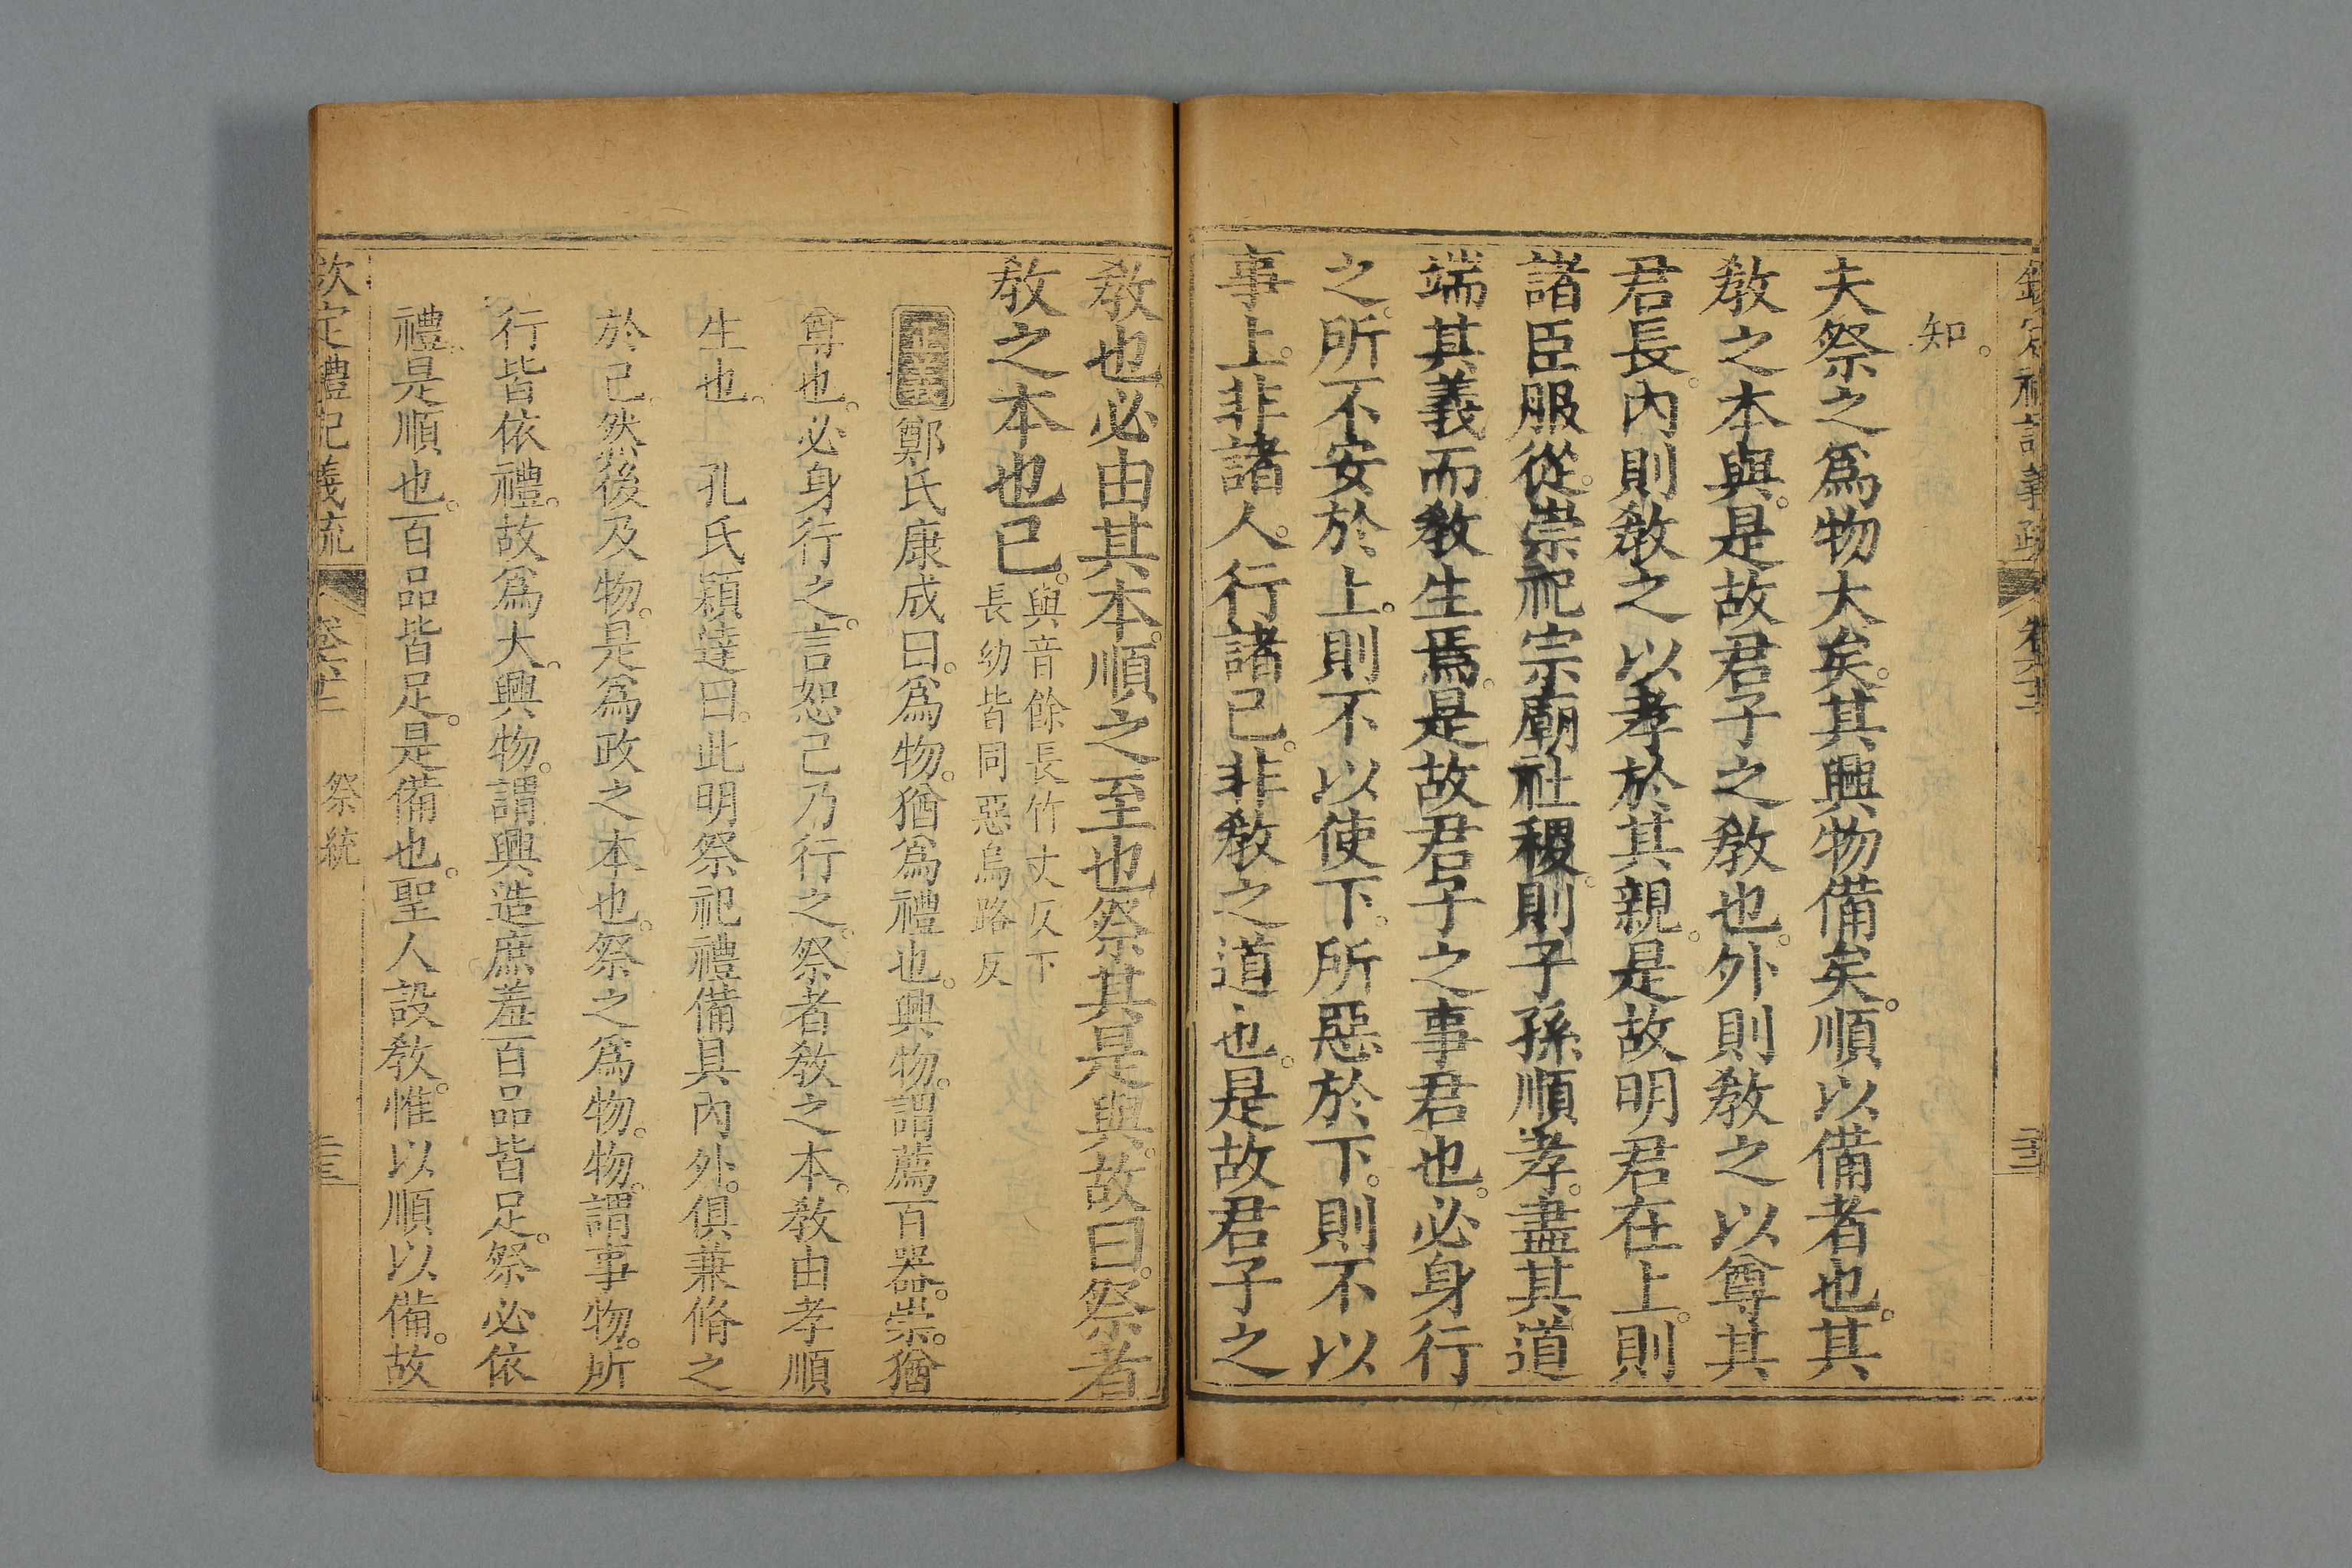 知。
夫祭之爲物大矣。其興物備矣。順以備者也。其
敎之本與。是故君子之敎也。外則敎之以尊其
君長。內則敎之以孝於其親。是故明君在上。則
諸臣服從。崇祀宗廟社稷。則子孫順孝。盡其道
端其義而敎生焉。是故君子之事君也。必身行
之。所不安於上。則不以使下。所惡於下。則不以
事上。非諸人。行諸己。非敎之道也。是故君子之
敎也。必由其本。順之至也。祭其是與。故曰。祭者
敎之本也已。
與音餘長竹丈反下
長幼皆同惡烏路反
正義 鄭氏康成曰。爲物。猶爲禮也。興物。謂薦百器。崇。猶
尊也。必身行之。言恕己乃行之。祭者敎之本。敎由孝順
生也。 孔氏穎達曰。此明祭祀禮備具內外。俱兼脩之
於己。然後及物。是爲政之本也。祭之爲物。物。謂事物。所
行皆依禮。故爲大。興物。謂興造庶羞百品皆足。祭必依
禮。是順也。百品皆足。是備也。聖人設敎。惟以順以備。故
欽定禮記義疏 卷六十二 祭統